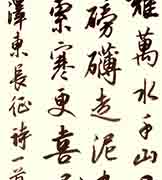 難萬水千山
磅礴走泥
索寒更喜
澤東長征詩一首